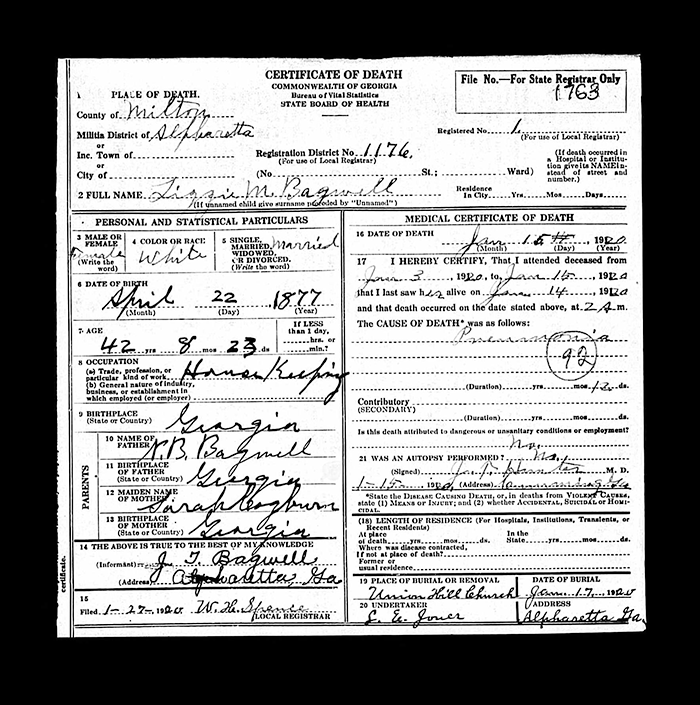 CERTIFICATE OF DEATH
COMMONWEALTH OF GEORGIA
Bureau of Vital Statistics
STATE BOARD OF HEALTH
File No.—For State Registrar Only
1763
1 PLACE OF DEATH.
County of Milton
Militia District of Alpharetta
or
Inc. Town of
or
City of
Registration District No. 1176
(For use of Local Registrar)
(No St.; Ward)
Registered No. 1
(For use of Local Registrar)
(If death occurred in a Hospital or Institution give its NAME instead of street and number.)
2 FULL NAME Lizzie M. Bagwell
(If unnamed child give surname preceded by "Unnamed")
Residence
In City Yrs. Mos. Days.
PERSONAL AND STATISTICAL PARTICULARS
3 MALE OR FEMALE
Female
(Write the word)
4 COLOR OR RACE
White
5 SINGLE, MARRIED, WIDOWED, OR DIVORCED.
Married
(Write the word)
6 DATE OF BIRTH
April 22 1877
(Month) (Day) (Year)
7 AGE
42 yrs 8 mos 23 ds
If LESS than 1 day, hrs. or min.?
8 OCCUPATION
(a) Trade, profession, or particular kind of work House Keeping
(b) General nature of industry, business, or establishment in which employed (or employer)
9 BIRTHPLACE
(State or Country) Georgia
PARENTS
10 NAME OF FATHER
N.B. Bagwell
11 BIRTHPLACE OF FATHER
(State or Country) Georgia
12 MAIDEN NAME OF MOTHER
Sarah Cogburn
13 BIRTHPLACE OF MOTHER
(State or Country) Georgia
14 THE ABOVE IS TRUE TO THE BEST OF MY KNOWLEDGE
(Informant) J. T. Bagwell
(Address) Alpharetta Ga
15
Filed 1-27-1920 W. H. Spence
LOCAL REGISTRAR
certificate.
MEDICAL CERTIFICATE OF DEATH
16 DATE OF DEATH
Jan 15 1920
(Month) (Day) (Year)
17 I HEREBY CERTIFY, That I attended deceased from
Jan 3 1920 to Jan 15 1920
that I last saw her alive on Jan 14 1920
and that death occurred on the date stated above, at 2 A m.
The CAUSE OF DEATH* was as follows:
Pneumonia
92
(Duration) yrs. mos. 12 ds.
Contributory
(SECONDARY)
(Duration) yrs. mos. ds.
Is this death attributed to dangerous or unsanitary conditions or employment?
No.
21 WAS AN AUTOPSY PERFORMED? No.
(Signed) M. D.
1-15- 1920 (Address)
*State the DISEASE CAUSING DEATH, or, in deaths from VIOLENT CAUSES, state (1) MEANS OF INJURY; and (2) whether ACCIDENTAL, SUICIDAL or HOMICIDAL.
(18) LENGTH OF RESIDENCE (For Hospitals, Institutions, Transients, or Recent Residents)
At place of death yrs. mos. ds. In the State yrs. mos. ds.
Where was disease contracted, if not at place of death?
Former or usual residence
19 PLACE OF BURIAL OR REMOVAL
Union Hill Church
DATE OF BURIAL
Jan. 17, 1920
20 UNDERTAKER
L. E. Jones
ADDRESS
Alpharetta Ga.